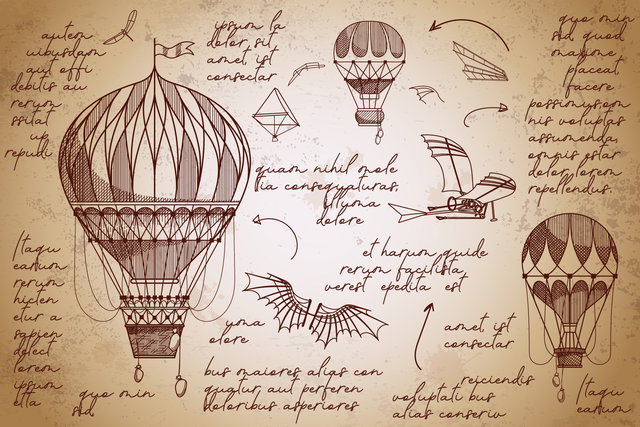 autem
uibusdam
aut offi
debilis au
rerum
ssitat
up
repudi
ipsum la
dolor sit
amet ist
consectar
quo min
sid quod
maxime
placeat
facere
possimusom
nis voluptas
assumenda
omnis estar
dolor lorem
repellendus.
quam nihil mole
tia consequaturas.
Illyma
dolore
et harum quide
rerum facilista
verest epedita est
Itaqu
earum
rerum
hicten
etur a
sapien
delect
lorem
ipsum
etta
quo min
sid
yoma
olore
bus maiores alias con
quatur aut perferen
doloribus asperiores
amet ist
consectar
reiciendis
voluptati bus
alias conseriv
Itaqu
earum